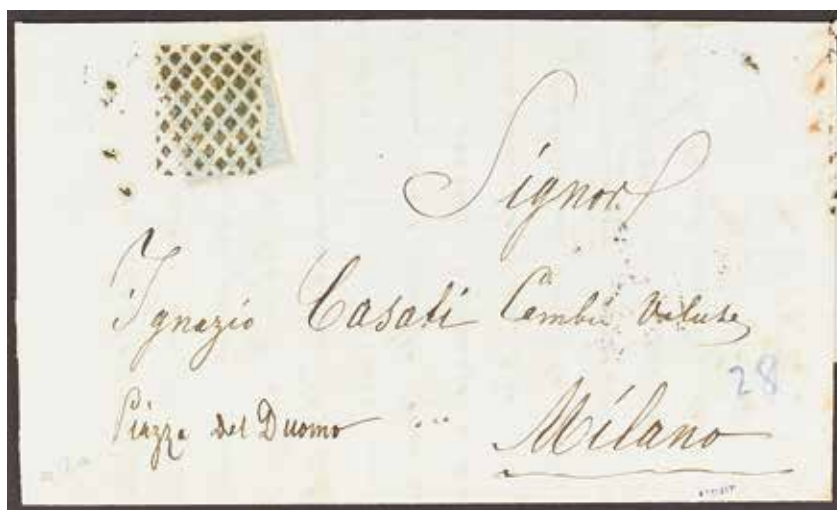 Signor
Ignazio Casati Cambio Valute
Piazza del Duomo
28
Milano